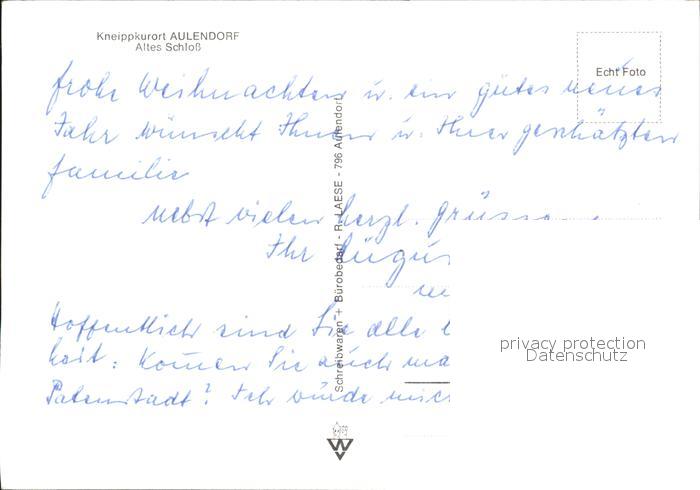 Kneippkurort AULENDORF
Altes Schloß
Echt Foto
frohe Weihnachten u. ein gutes neues
Jahr wünscht Ihnen u. Ihrer geschätzten
Familie
nebst vielen herzl. Grüssen
Ihr
Hoffentlich sind Sie alle
heit: Komen Sie auch ma
Patenstadt? Ich würde mic
Schreibwaren + Bürobedarf - R. LAESE - 796 Aulendorf
privacy protection
Datenschutz